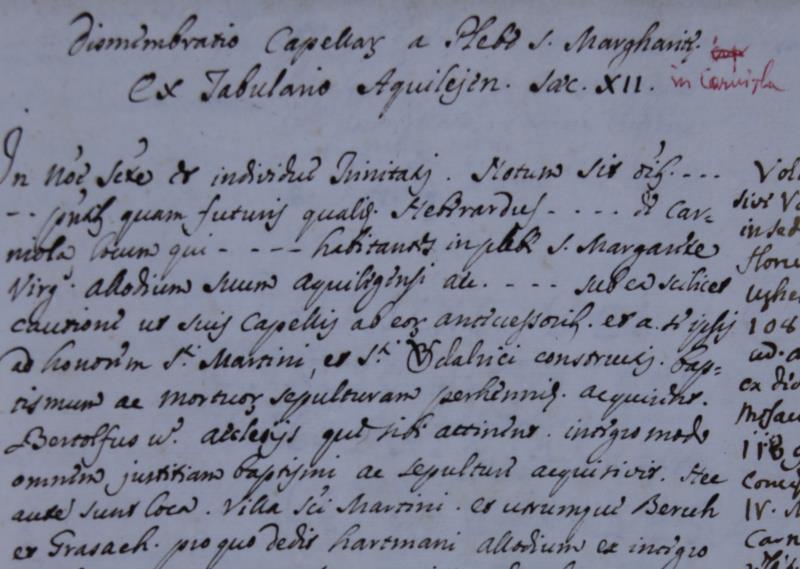 Dismembratio Capellaꝝ a Plebe S. Margharitę.
Ex Tabulario Aquilejen. sæc. XII. in Carniola
In nõe Scẽe et individuę Trinitatis. Notum sit oĩb. ----
-- pñtib. quam futuris qualit. Hebrardus ---- de Car=
niola locum qui ---- habitantes in plebe S. Margarite
Virg. allodium suum aquilegensi ---- sub ea scilicet
cautione ut suis Capellis ab eoꝝ antecessorib. et a se ipsis
ad honorem S.ti Martini, et S.ti Vdalrici constructis. bap=
tismum ac mortuoꝝ sepulturam perhennit. acquirerent.
Bertolfus u. acclesijs que sibi attinent. integro modo
omnem justitiam baptismi ac sepulture acquisivit. Hec
aute sunt loca. Villa Sci Martini. et utrumque Beruh
et Grasach. pro quo dedit hartmani allodium ex integro
Vol
sive Vo
in sed
floru
108
ex dio
Mosac
118
IV. M
Carn